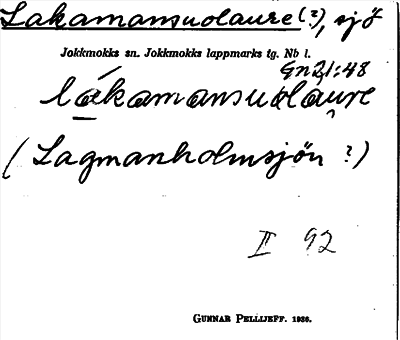 Lakamansuolaure (?), sjö
Jokkmokks sn. Jokkmokks lappmarks tg. Nb l.
Gn 21:48
lákamansuolaure
(Lagmanholmsjön ?)
II 92
GUNNAR PELLIJEFF. 1936.